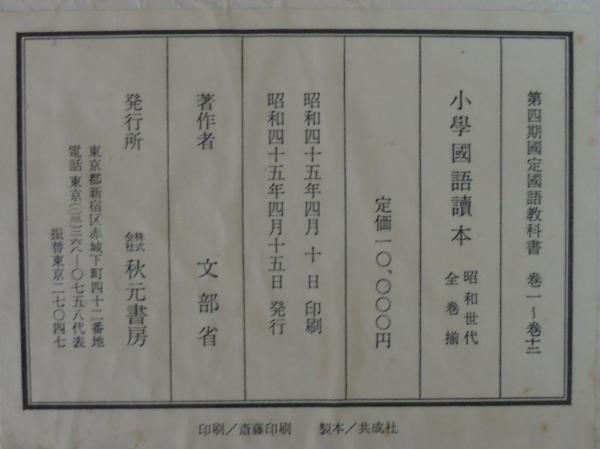 第四期國定國語教科書 巻一~巻十二
小學國語讀本 昭和世代
全巻揃
定価一〇、〇〇〇円
昭和四十五年四月 十 日 印刷
昭和四十五年四月十五日 発行
著作者 文部省
発行所 株式会社 秋元書房
東京都新宿区赤城下町四十二番地
電話 東京(二三)三六八―〇七五八代表
振替東京二七〇四七
印刷/斎藤印刷 製本/共成社